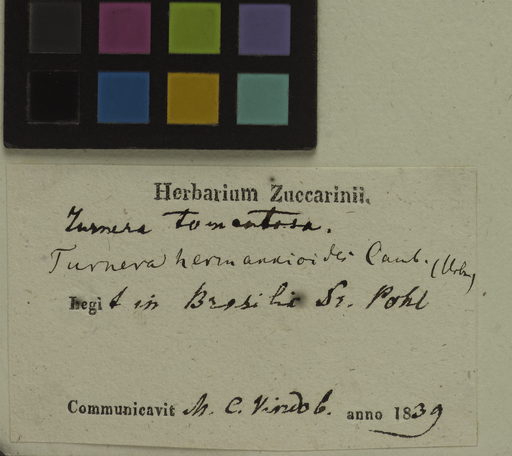 Herbarium Zuccarinii.
Turnera tomentosa.
Turnera hermannioides Camb. (Urb.)
Legit in Brasilia Dr. Pohl
Communicavit M. C. Vindob. anno 1839